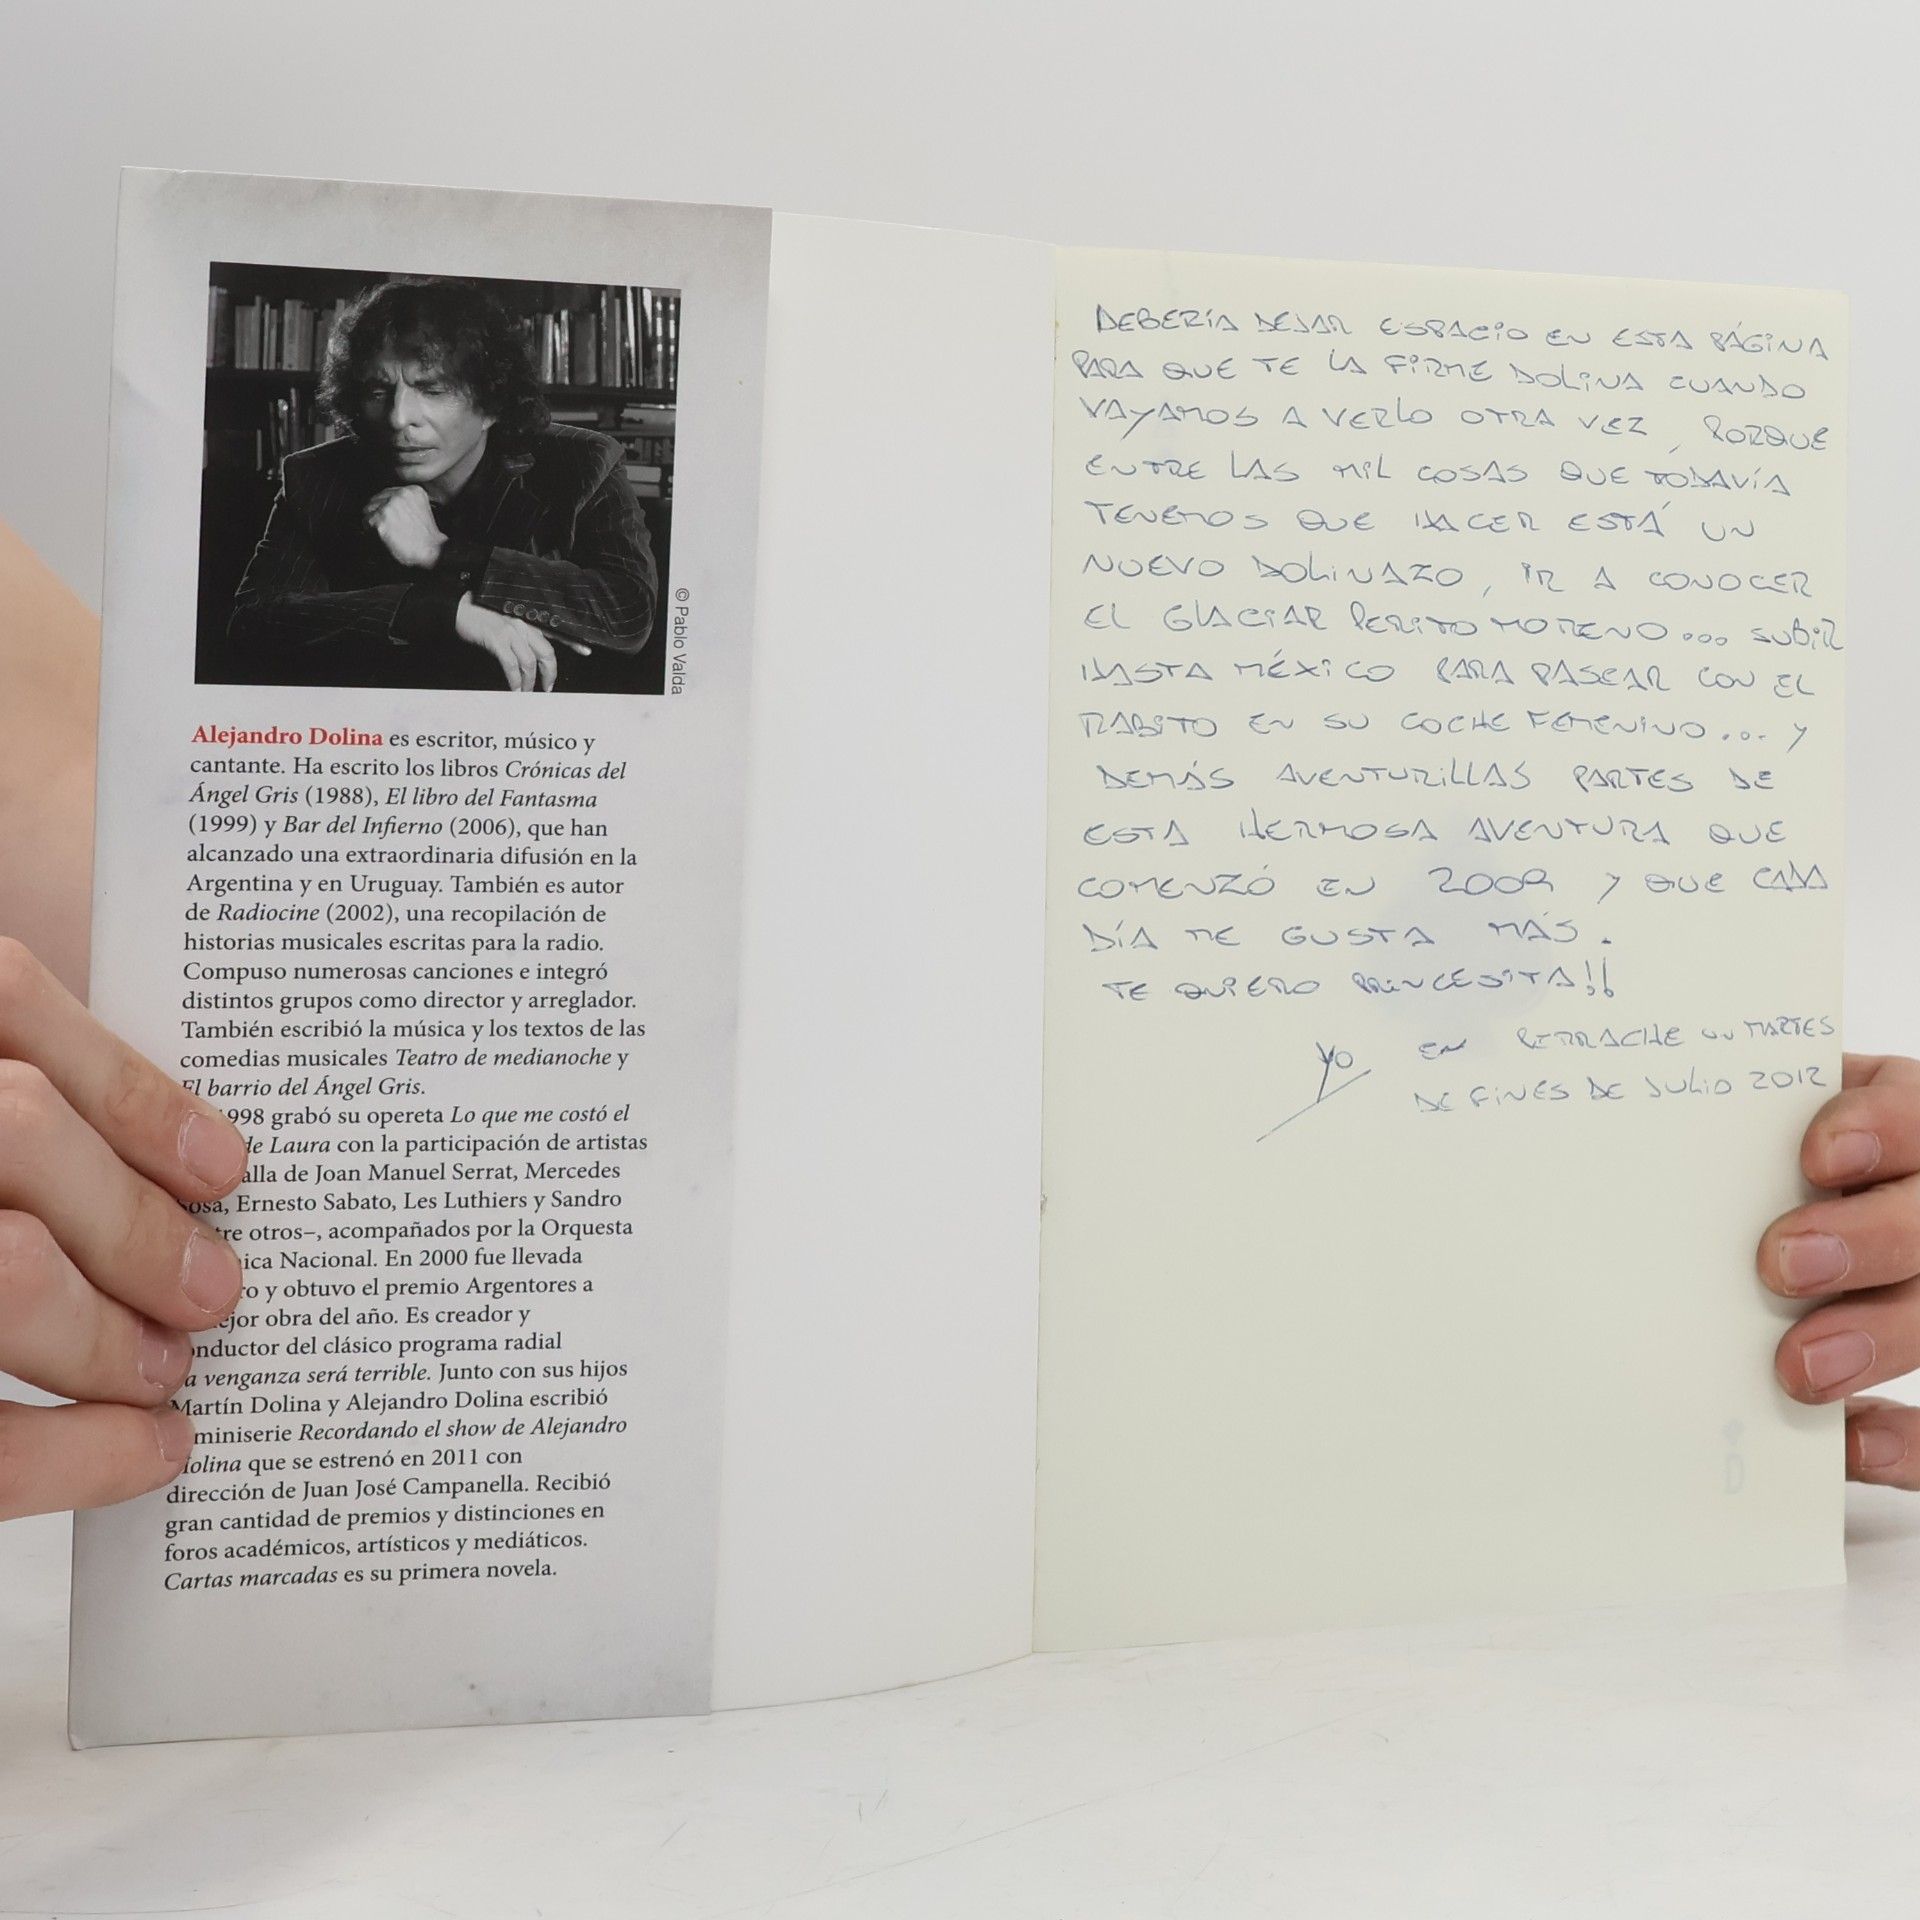 © Pablo Valda
Alejandro Dolina es escritor, músico y
cantante. Ha escrito los libros Crónicas del
Ángel Gris (1988), El libro del Fantasma
(1999) y Bar del Infierno (2006), que han
alcanzado una extraordinaria difusión en la
Argentina y en Uruguay. También es autor
de Radiocine (2002), una recopilación de
historias musicales escritas para la radio.
Compuso numerosas canciones e integró
distintos grupos como director y arreglador.
También escribió la música y los textos de las
comedias musicales Teatro de medianoche y
El barrio del Ángel Gris.
1998 grabó su opereta Lo que me costó el
de Laura con la participación de artistas
alla de Joan Manuel Serrat, Mercedes
Sosa, Ernesto Sabato, Les Luthiers y Sandro
tre otros–, acompañados por la Orquesta
ica Nacional. En 2000 fue llevada
ro y obtuvo el premio Argentores a
ejor obra del año. Es creador y
onductor del clásico programa radial
a venganza será terrible. Junto con sus hijos
Martín Dolina y Alejandro Dolina escribió
miniserie Recordando el show de Alejandro
olina que se estrenó en 2011 con
dirección de Juan José Campanella. Recibió
gran cantidad de premios y distinciones en
foros académicos, artísticos y mediáticos.
Cartas marcadas es su primera novela.
DEBERÍA DEJAR ESPACIO EN ESTA PÁGINA
PARA QUE TE LA FIRME DOLINA CUANDO
VAYAMOS A VERLO OTRA VEZ, PORQUE
ENTRE LAS MIL COSAS QUE TODAVÍA
TENEMOS QUE HACER ESTÁ UN
NUEVO DOLINAZO, IR A CONOCER
EL GLACIAR PERITO MORENO... SUBIR
HASTA MÉXICO PARA PASEAR CON EL
RABITO EN SU COCHE FEMENINO... Y
DEMÁS AVENTURILLAS PARTES DE
ESTA HERMOSA AVENTURA QUE
COMENZÓ EN 2009 Y QUE CADA
DÍA ME GUSTA MÁS.
TE QUIERO PRINCESITA!!
YO
EN UN MARTES
DE FINES DE JULIO 2012